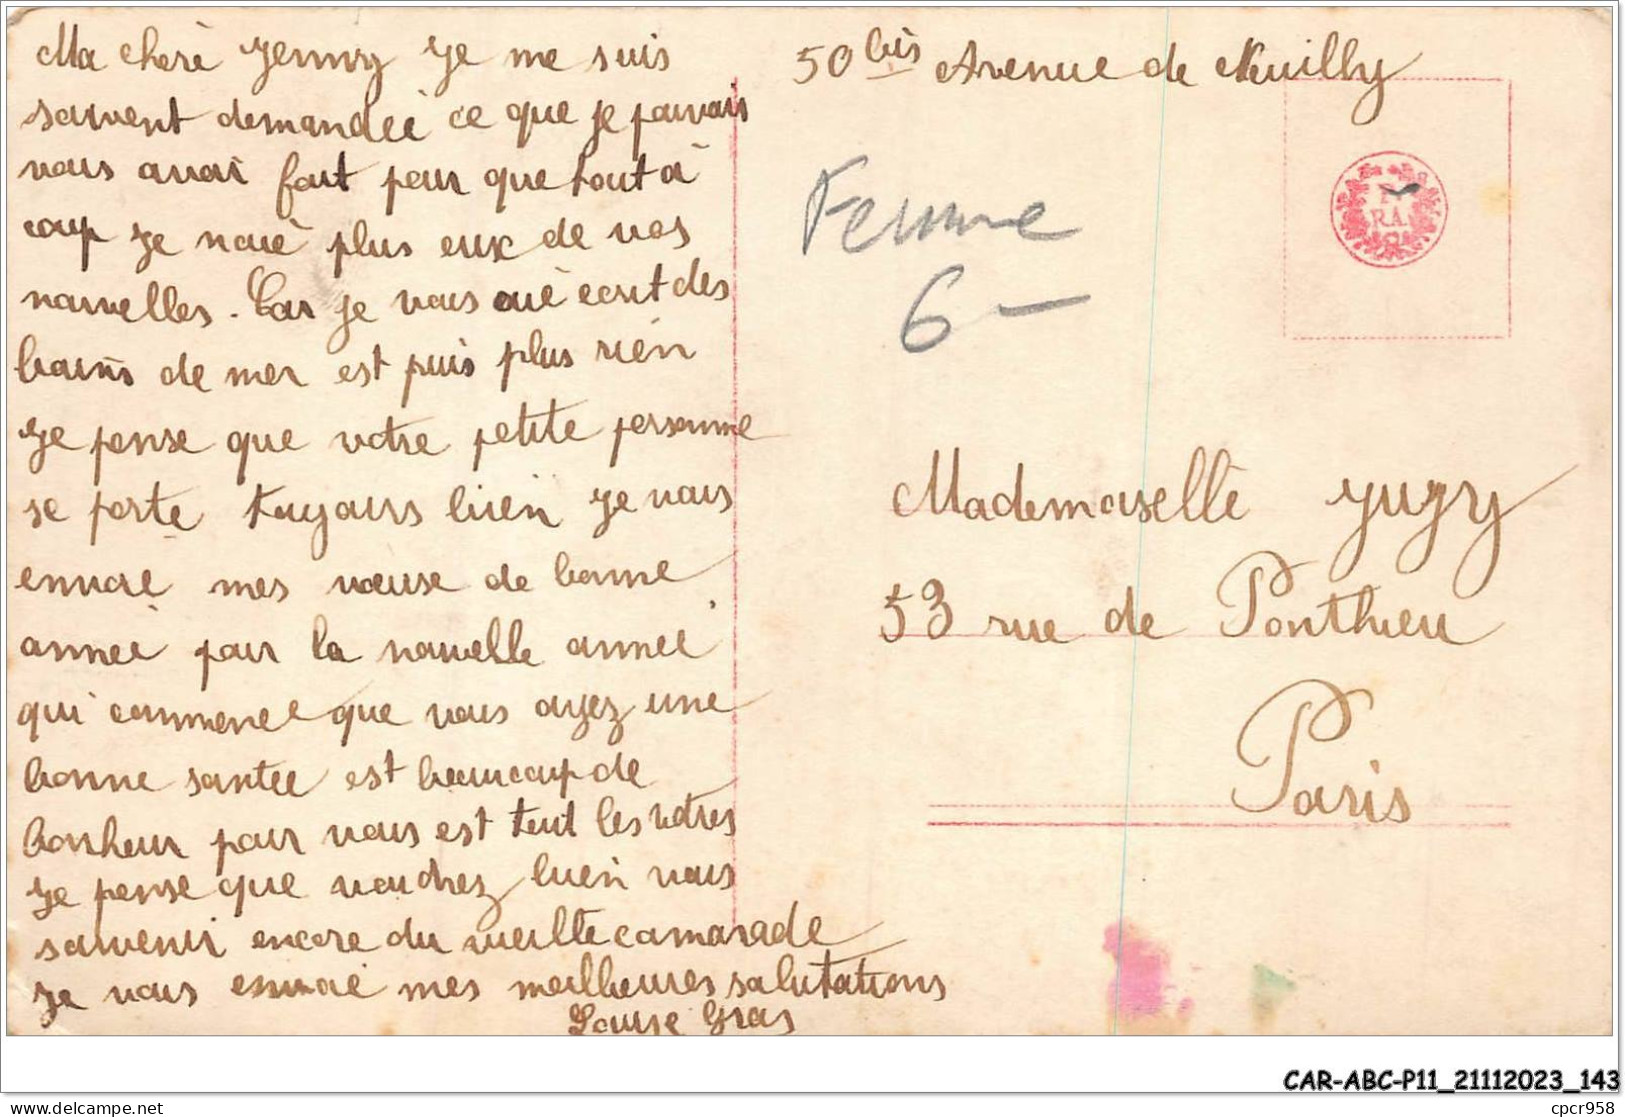 Ma cherè Jenny Je me suis
souvent demandeé ce que je pouvais
vous avoir fait pour que tout à
coup Je naie plus eux de vos
nouvelles. Car je vous aiè ecrit des
bains de mer est puis plus rien
Je pense que votre petite personne
se porte toujours bien Je vous
envoie mes vœuse de bonne
anneé pour la nouvelle anneé
qui commence que vous ayez une
bonne santee est beaucoup de
bonheur pour vous est tout les votres
Je pense que voudrez bien vous
souvenir encore du vieille camarade
Je vous envoie mes meilheures salutations
Louise Gras
50 bis Avenue de Neuilly
Femme
6 —
R.A.
Mademoisellè
53 rue de Ponthieu
Paris
CAR-ABC-P11_21112023_143
cpcr958